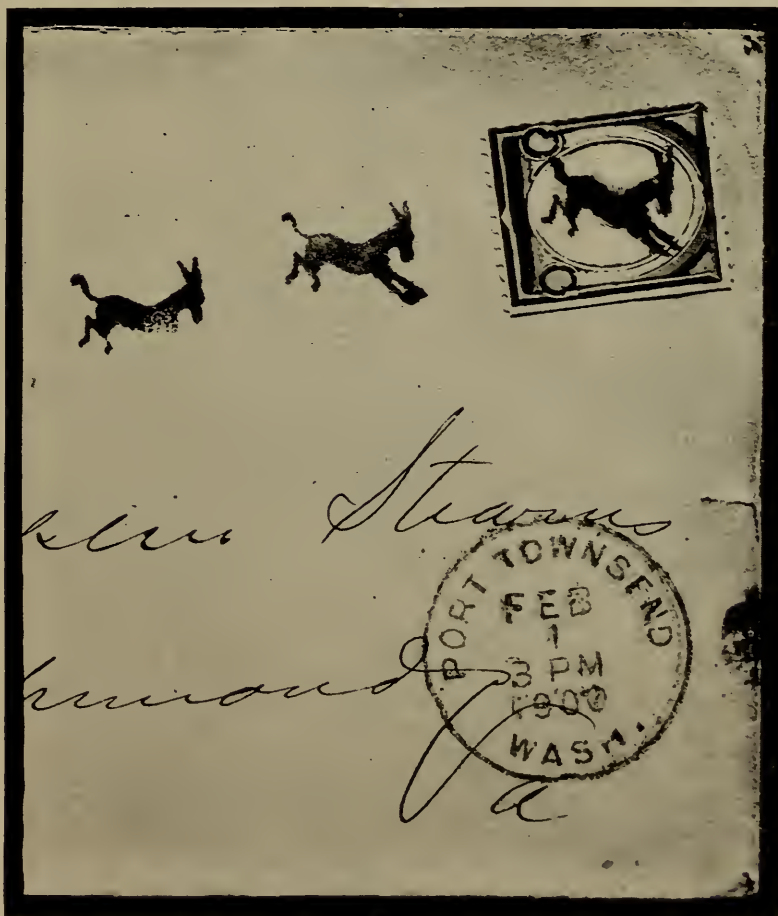 Stearns
PORT TOWNSEND
FEB
1
3 PM
1900
WASH.
Va